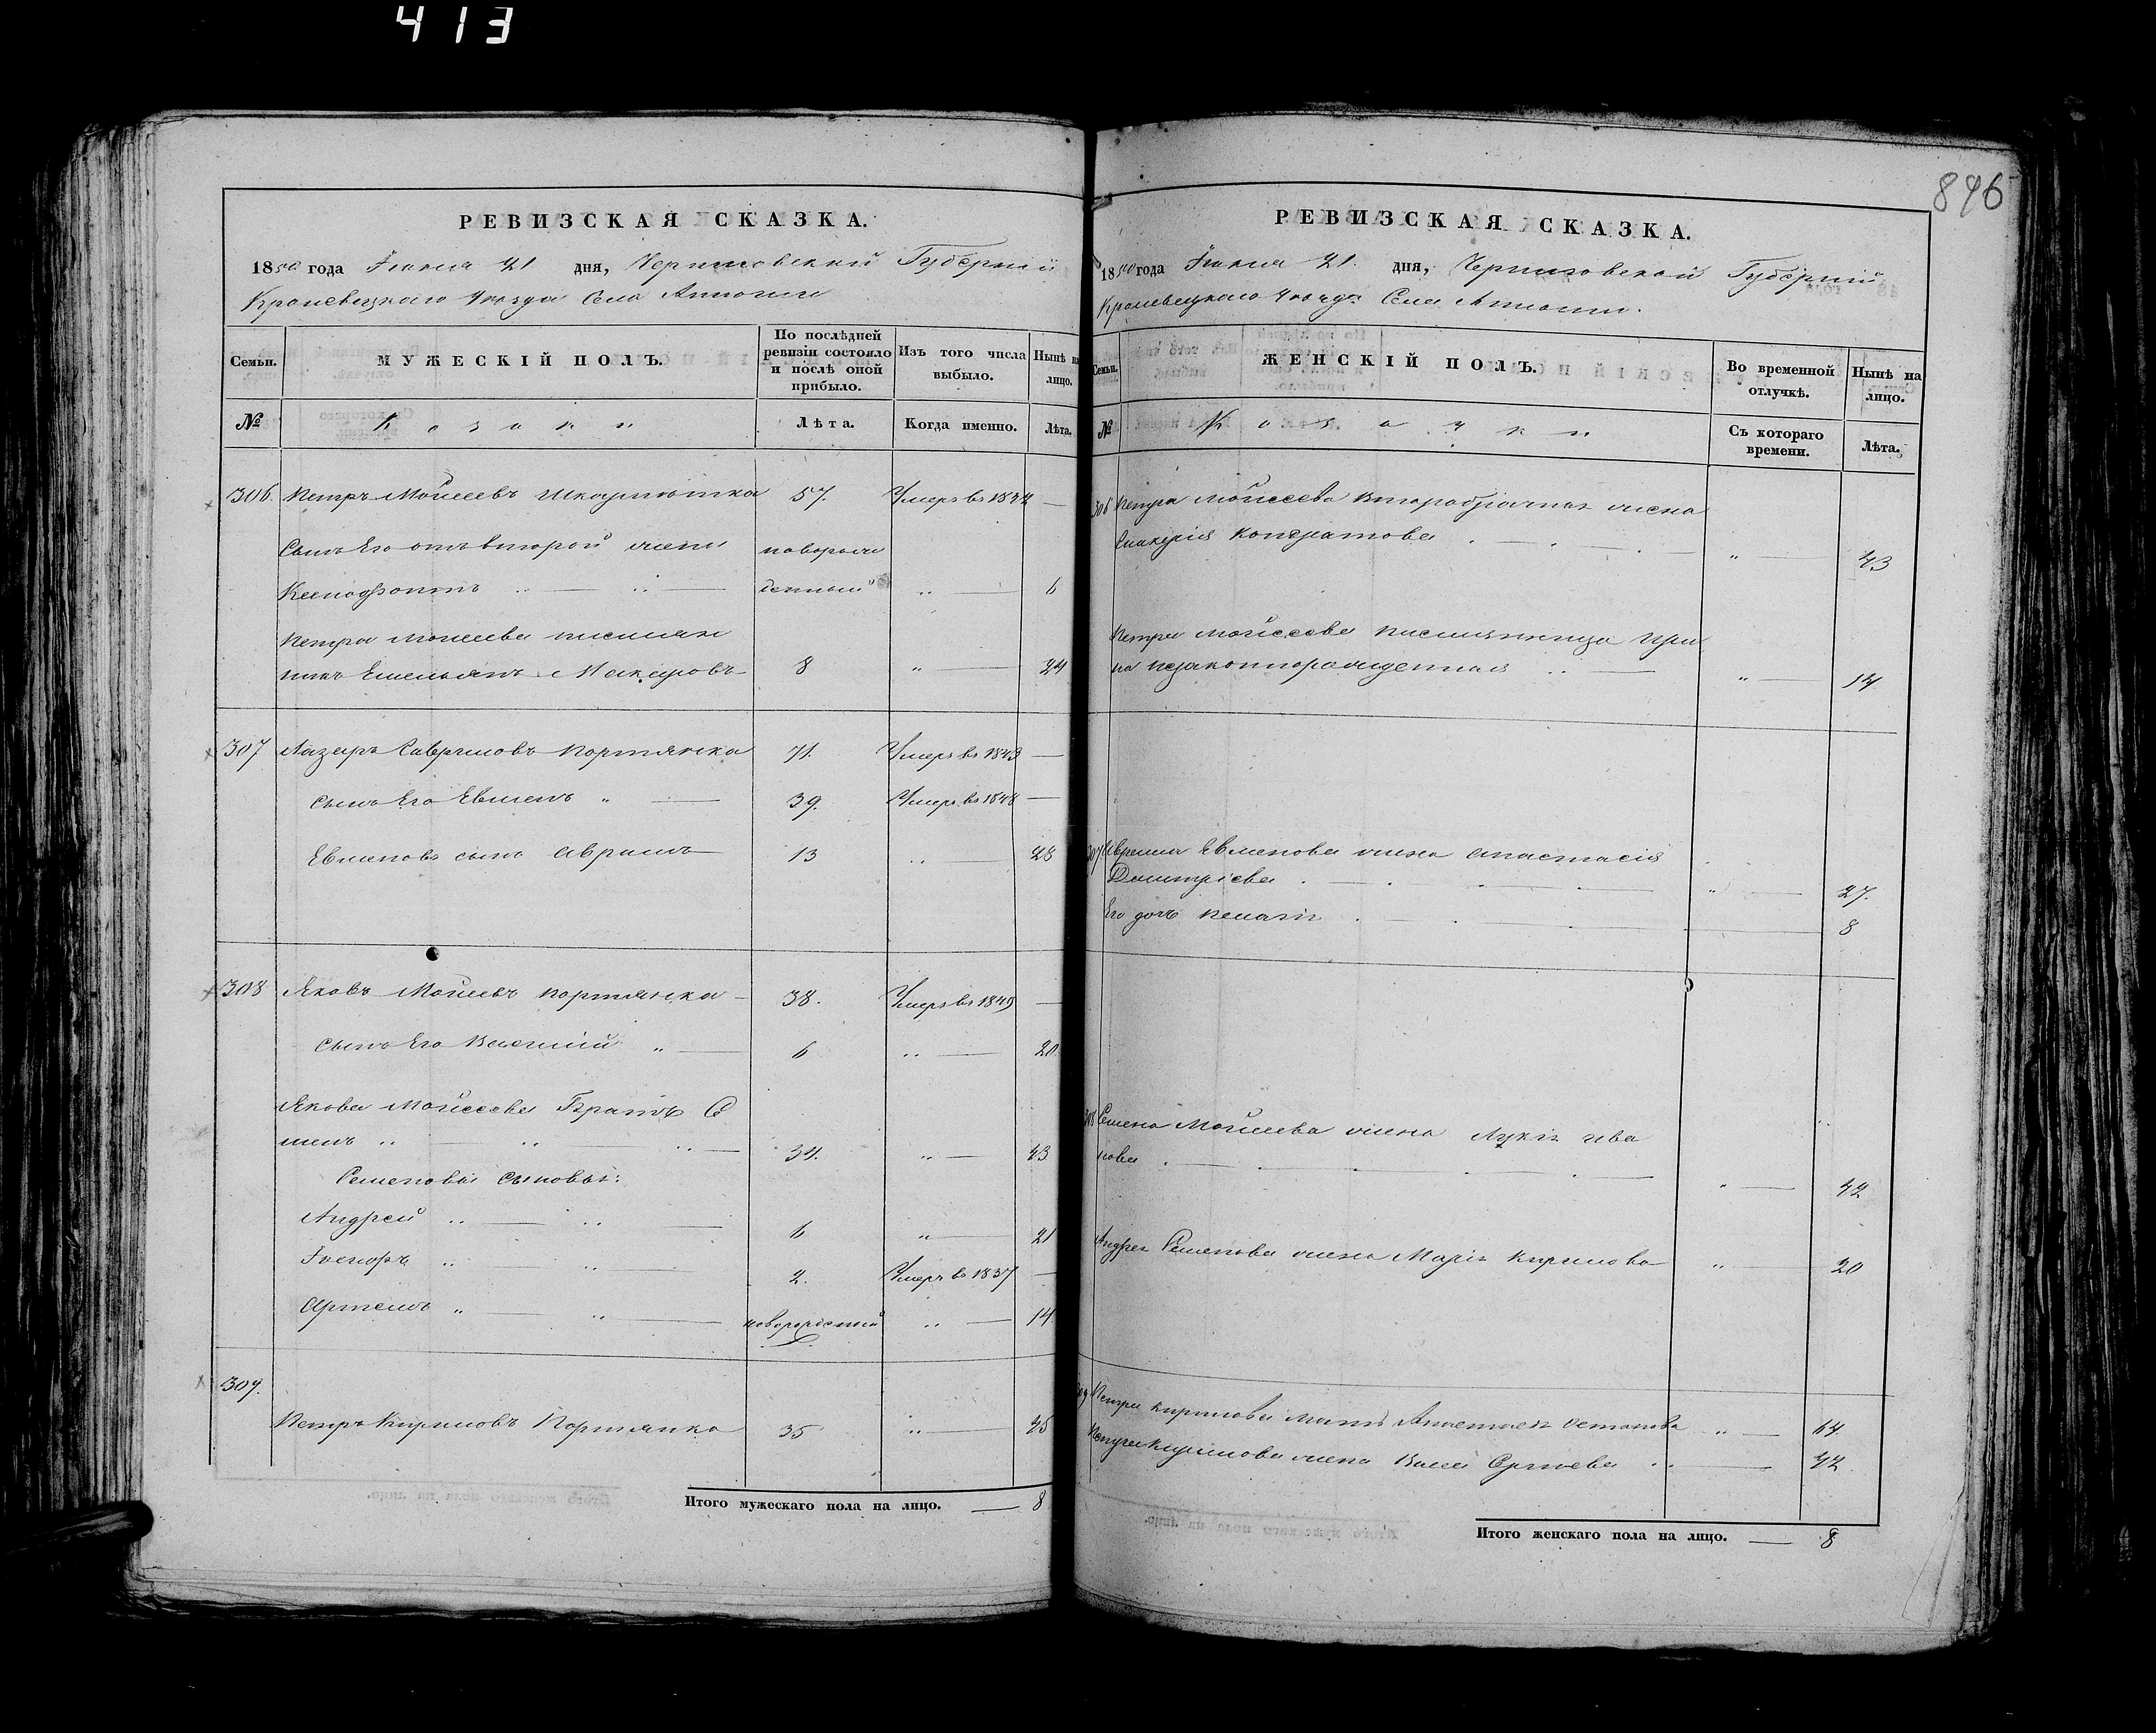 413
РЕВИЗСКАЯ СКАЗКА.
1850 года Іюня 21 дня, Черниговской Губерніи
Кролевецкаго Уѣзда Села
Семьи.
МУЖЕСКІЙ ПОЛЪ.
По послѣдней ревизіи состояло и послѣ оной прибыло.
Изъ того числа выбыло.
Нынѣ на лицо.
№
Козаки
Лѣта.
Когда именно.
Лѣта.
306. Петръ Мойсеевъ 57. Умеръ въ 1844 —
Сынъ Его отъ второй жены новорож
Ксенофонтъ денный „ — 6
Петра Мойсеева
Емельянъ Макаровъ 8 „ — 24
307 Лазарь Гавриловъ Портянка 71. Умеръ въ 1843 —
Сынъ Его Евменъ „ — 39. Умеръ въ 1848 —
Евменовъ сынъ Аврамъ 13 „ — 28
308 Яковъ Мойсеевъ Портянка — 38. Умеръ въ 1849 —
Сынъ Его Василій „ — 6 „ — 20
Якова Мойсеева Братъ Се
менъ „ — 34. „ — 43
Семеновы сыновья:
Андрей „ — 6 „ — 21
2. Умеръ въ 1837 —
Артемъ „ — новорожденный „ — 14
309.
Петръ Кириловъ Портянка 35 „ —
Итого мужескаго пола на лицо. — 8
846
РЕВИЗСКАЯ СКАЗКА.
1850 года Іюня 21. дня, Черниговской Губерніи
Кролевецкаго Уѣзда Села
Семьи.
ЖЕНСКІЙ ПОЛЪ.
Во временной отлучкѣ.
Нынѣ на лицо.
№
Козачки
Съ котораго времени.
Лѣта.
306 Петра Мойсеева второбрачная жена
Гликерія Кондратова „ — 43
Петра Мойсеева Ири
на незаконнорожденная „ — 14
307 Аврама Евменова жена Анастасія
Дмитріева „ — 27.
Его дочь Пелагія — 8
308 Семена Мойсеева жена Лукія Ива
нова „ — 42
Андрея Семенова жена Марія Кирилова „ — 20
309 Петра Кирилова мать Остапова „ — 64
Петра Кирилова жена Сергѣева „ — 42.
Итого женскаго пола на лицо. — 8